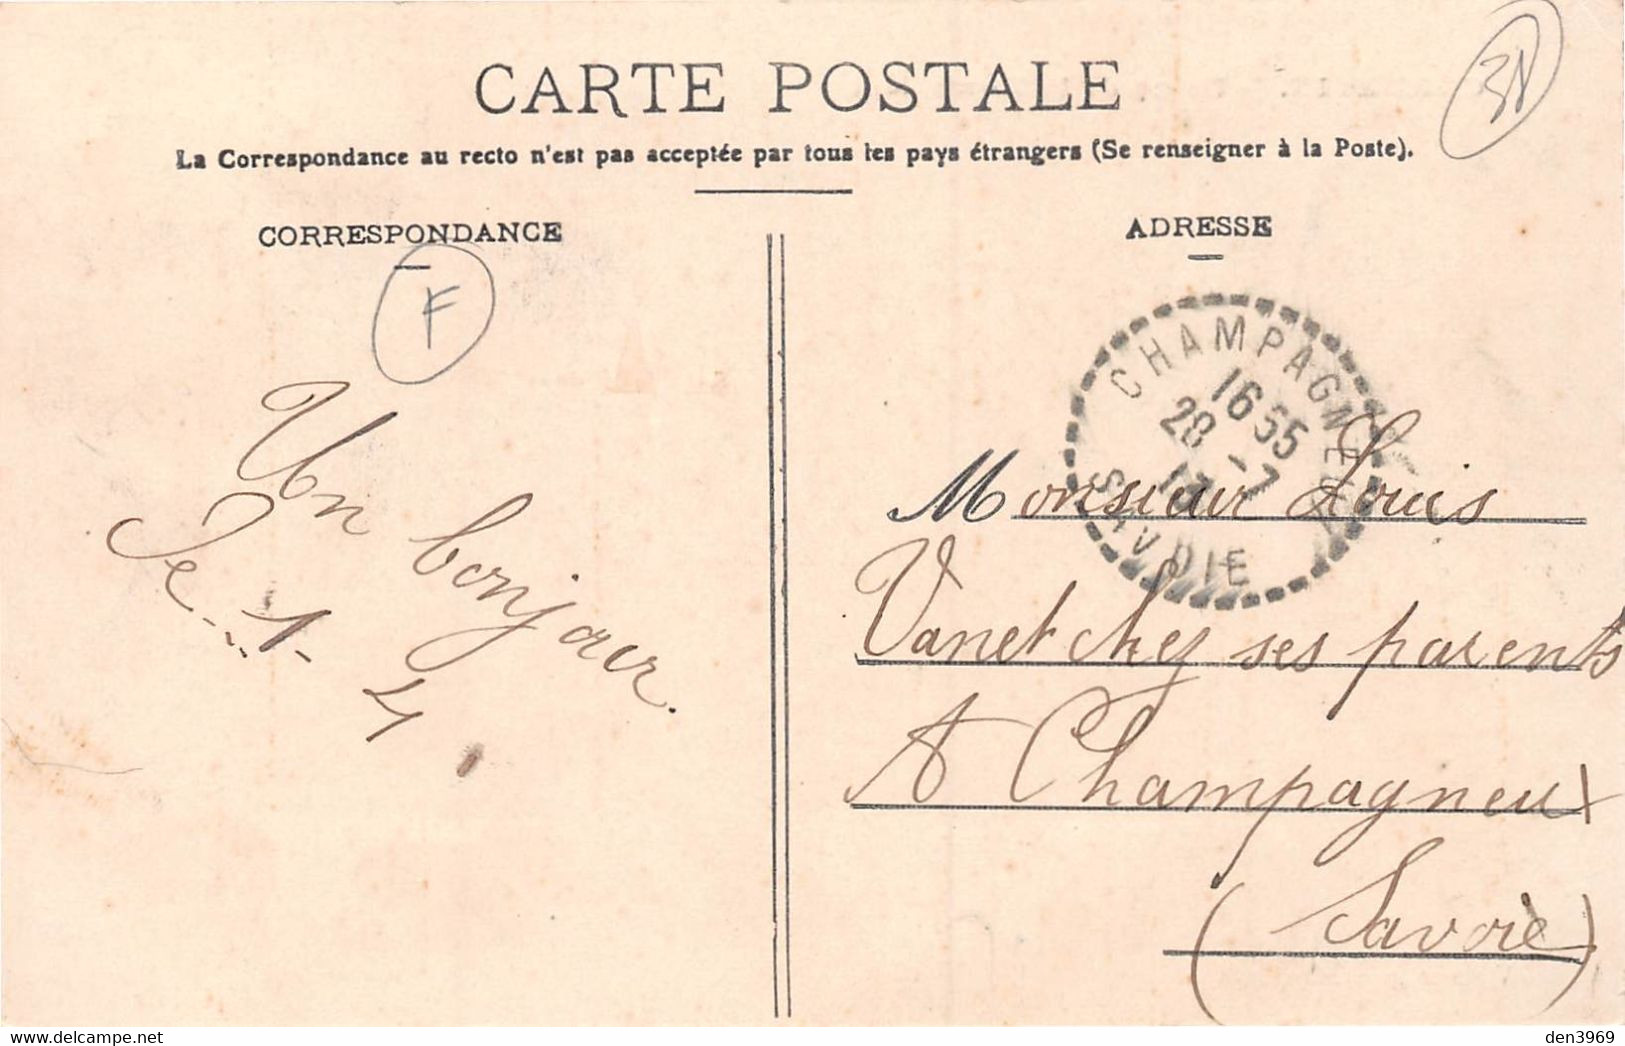 CARTE POSTALE
La Correspondance au recto n'est pas acceptée par tous les pays étrangers (Se renseigner à la Poste).
CORRESPONDANCE
F
Un bonjour.
ADRESSE
CHAMPAGNEUX
28 -7
SAVOIE
Monsieur Louis
Vanet chez ses parents
A Champagneux
(Savoie)
www.delcampe.net
den3969